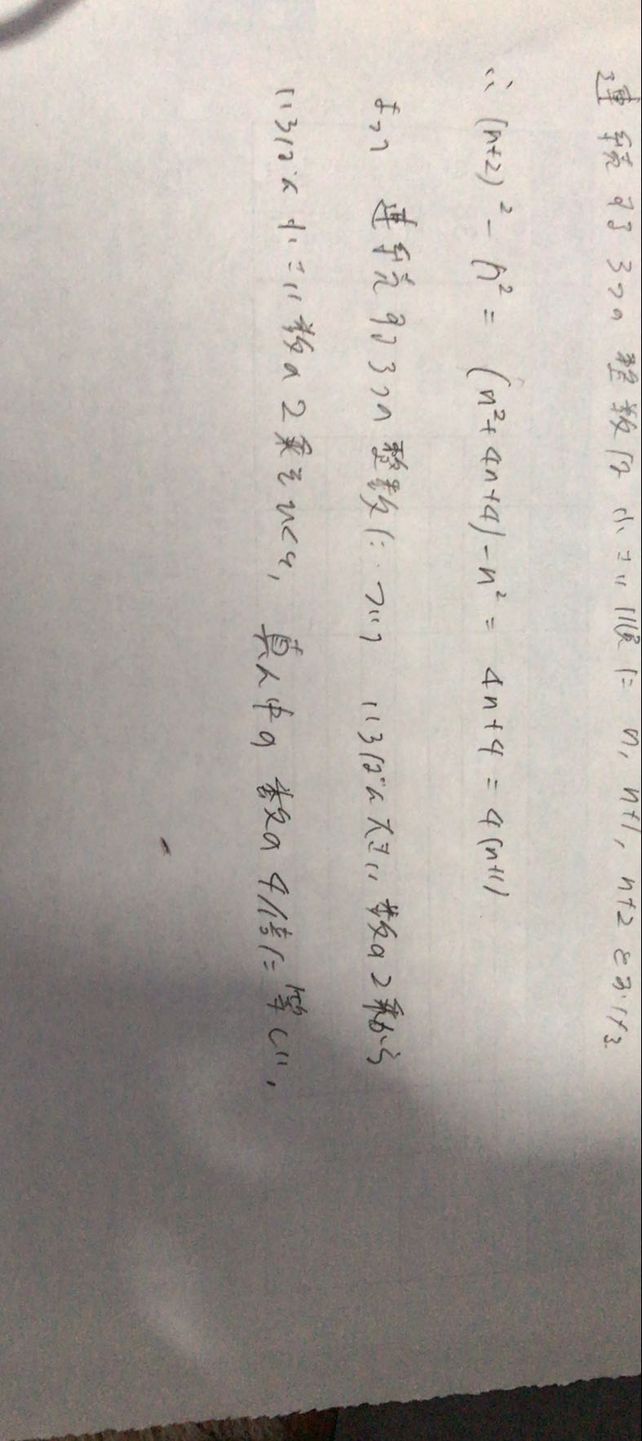 連続する3つの整数は小さい順に n, n+1, n+2 とおける
∴ (n+2)² - n² = (n²+4n+4)-n² = 4n+4 = 4(n+1)
よって 連続する3つの整数について いちばん大きい数の2乗から
いちばん小さい数の2乗を引くと, 真ん中の数の4倍に等しい.